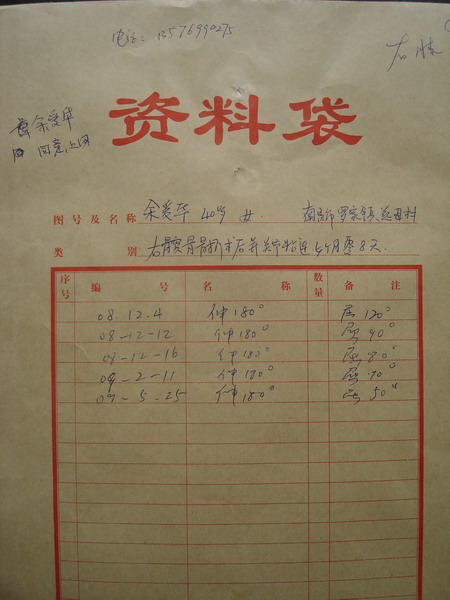 电话: 13576990275
右膝
余爱华
同意上网
资料袋
图号及名称 余爱华 40岁 女. 南昌市罗家镇
类 别 右髌骨骨折术后并关节粘连 5个月零8天.
序号 编 号 名 称 数量 备 注
08.12.4 伸180° 屈120°
08-12-12 伸180° 屈90°
08-12-16 伸180° 屈80°
09-2-11 伸180° 屈70°
09-5-25 伸180° 屈50°